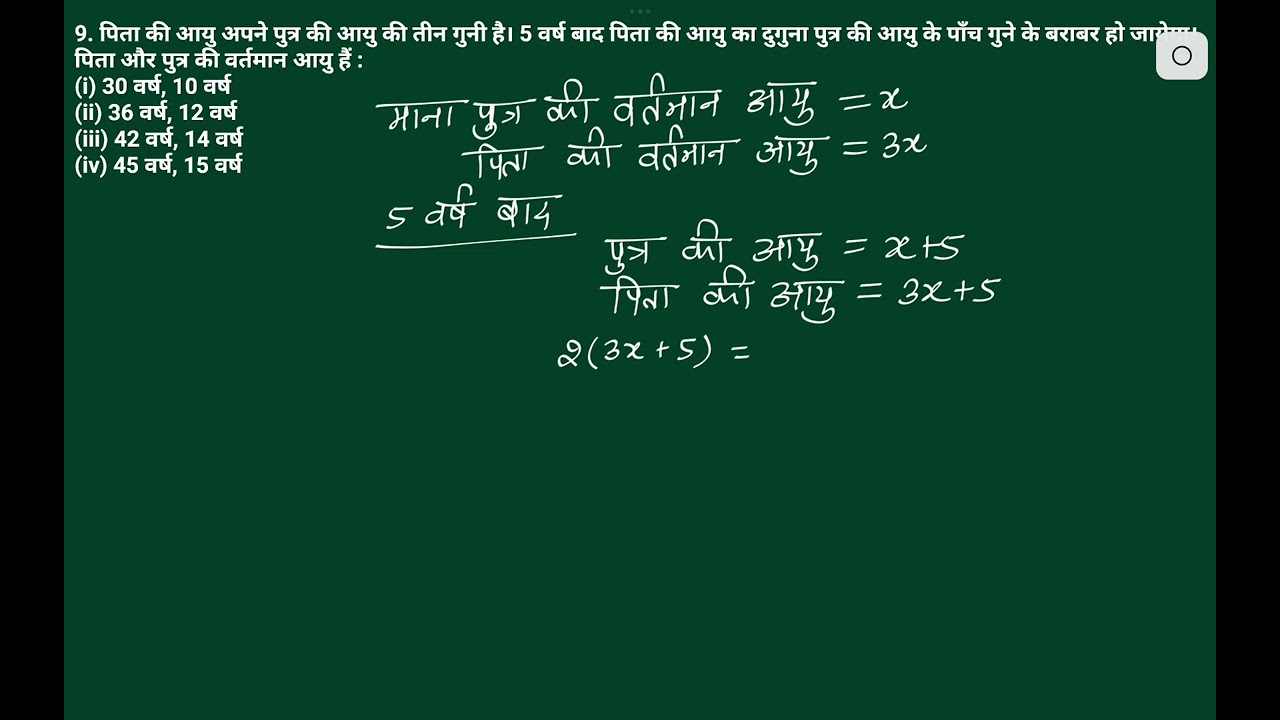 9. पिता की आयु अपने पुत्र की आयु की तीन गुनी है। 5 वर्ष बाद पिता की आयु का दुगुना पुत्र की आयु के पाँच गुने के बराबर हो
पिता और पुत्र की वर्तमान आयु हैं :
(i) 30 वर्ष, 10 वर्ष
(ii) 36 वर्ष, 12 वर्ष
(iii) 42 वर्ष, 14 वर्ष
(iv) 45 वर्ष, 15 वर्ष
माना पुत्र की वर्तमान आयु = x
पिता की वर्तमान आयु = 3x
5 वर्ष बाद
पुत्र की आयु = x+5
पिता की आयु = 3x+5
2(3x+5) =